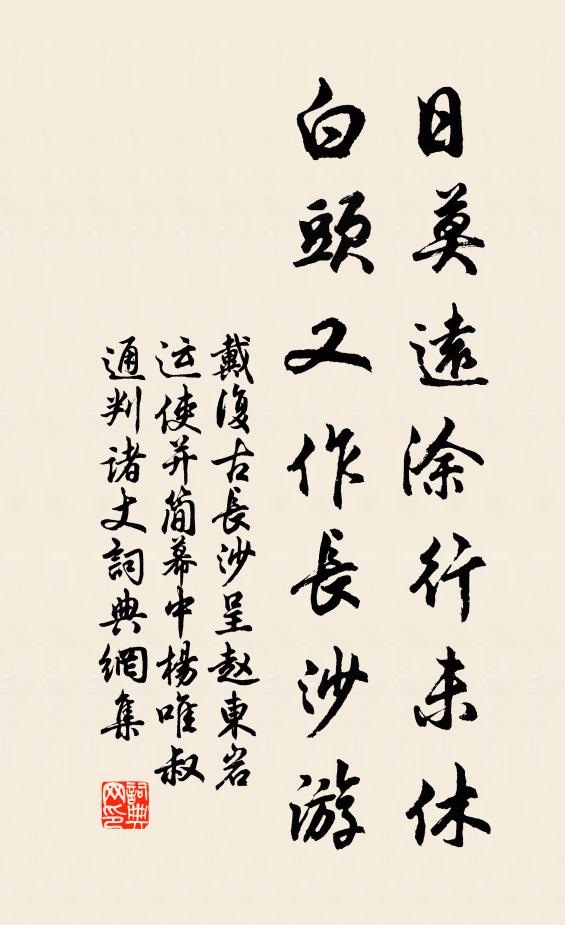 日莫遠涂行未休
白頭又作長沙游
戴復古長沙呈赵東岩
运使并简幕中楊唯叔
通判诸丈詞典網集
詞典网印